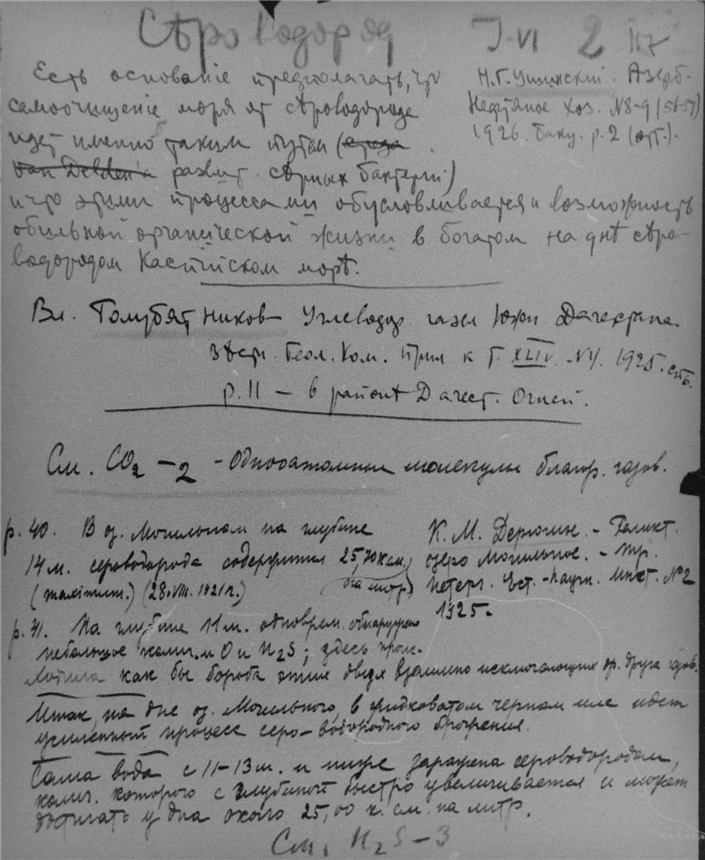 Сѣроводород I-VI 2
Есть основаніе предполагать, что
самоочищеніе моря от сѣроводорода
идет именно таким путем (среда
van Delden'a развит. сѣрных бактерій)
и что этими процессами обусловливается и возможность
обильной органической жизни в богатом на днѣ сѣро-
водородом Каспійском морѣ.
Н.Г. Ушинский. Азерб.
Нефтяное хоз. №8-9 (56-57)
1926. Баку. р. 2 (отт.).
Вл. Голубятников Углеводор. газы Южн. Дагестана.
Геол. Ком. к т. XLIV. №4. 1925. стб.
р. 11 — в районѣ Дагест. Огней.
См. CO₂ – 2 - Одноатомные молекулы благор. газов.
р. 40. В оз. Могильном на глубине
14 м. сероводорода содержится 25, к.см.
(maximum.) (28.VIII. 1921 г.) на литр)
К. М. Дерюгин. - Реликт.
озеро Могильное. - Тр.
Петерг. Ест.-Научн. Инст. №2
1925.
р. 41. На глубине 11 м. одноврем. обнаружено
небольшое колич. и O и H₂S; здесь проис-
ходила как бы борьба этих двух взаимно исключающих др. друга газов.
Итак, на дне оз. Могильного, в жидковатом черном иле идет
усиленный процесс серо-водородного брожения.
Сама вода с 11-13 м. и ниже заражена сероводородом,
колич. которого с глубиной быстро увеличивается и может
достигать у дна около 25,00 к. см. на литр.
См. H₂S – 3